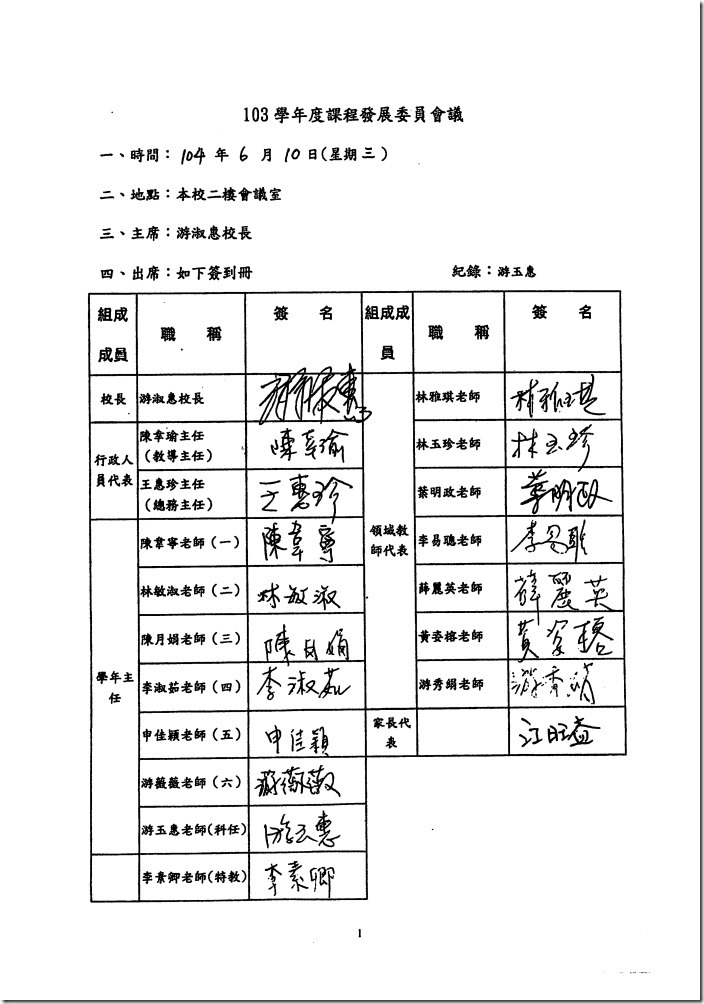 103 學年度課程發展委員會議
一、時間：104 年 6 月 10 日(星期三)
二、地點：本校二樓會議室
三、主席：游淑惠校長
四、出席：如下簽到冊 紀錄：游玉惠
組成成員 職稱 簽名 組成成員 職稱 簽名
校長 游淑惠校長 游淑惠
行政人員代表
陳韋瑜主任（教導主任） 陳韋瑜
王惠珍主任（總務主任） 王惠珍
學年主任
陳韋寧老師（一） 陳韋寧
林敏淑老師（二） 林敏淑
陳月娟老師（三） 陳月娟
李淑茹老師（四） 李淑茹
申佳穎老師（五） 申佳穎
游薇薇老師（六） 游薇薇
游玉惠老師(科任) 游玉惠
李素卿老師(特教) 李素卿
領域教師代表
林雅琪老師 林雅琪
林玉珍老師 林玉珍
葉明政老師 葉明政
李易聰老師 李易聰
薛麗英老師 薛麗英
黃姿榕老師 黃姿榕
游秀絹老師 游秀絹
家長代表 江旺益
1